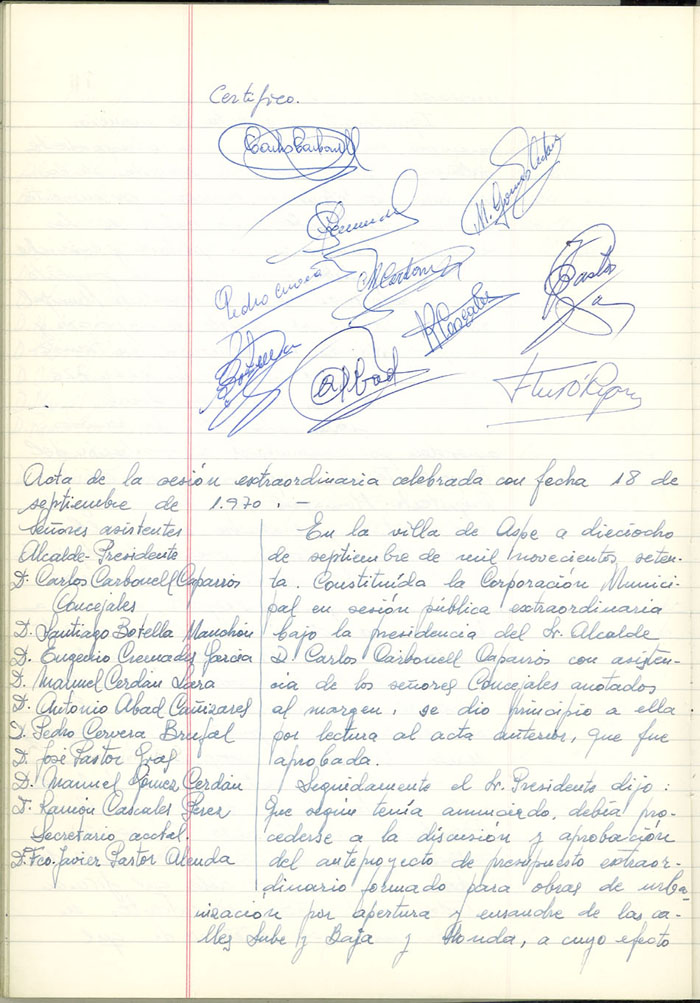 Certifico.
Carlos Carbonell
M. Gomez Cerdan
Pedro Cervera
M Cerdan
R Cascales
A Abad
Acta de la sesión extraordinaria celebrada con fecha 18 de
septiembre de 1.970. —
Señores asistentes
Alcalde-Presidente
D. Carlos Carbonell Caparros
Concejales
D. Santiago Botella Manchón
D. Eugenio Cremades Garcia
D. Manuel Cerdán Lara
D. Antonio Abad Cañizares
D. Pedro Cervera Brufal
D. José Pastor
D. Manuel Gomez Cerdán
D. Ramón Cascales Perez
Secretario acctal.
D. Fco. Javier Pastor Alenda
En la villa de Aspe a dieciocho
de septiembre de mil novecientos seten-
ta. Constituída la Corporación Munici-
pal en sesión pública extraordinaria
bajo la presidencia del Sr. Alcalde
D. Carlos Carbonell Caparros con asisten-
cia de los señores Concejales anotados
al margen, se dio principio a ella
por lectura al acta anterior, que fue
aprobada.
Seguidamente el Sr. Presidente dijo:
Que según tenía anunciado, debía pro-
cederse a la discusión y aprobación
del anteproyecto de presupuesto extraor-
dinario formado para obras de urba-
nización por apertura y ensanche de las ca-
lles Sube y Baja y Honda, a cuyo efecto